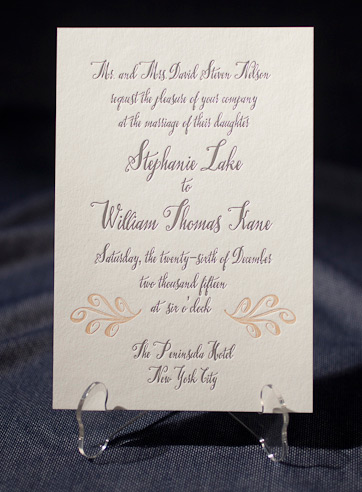 Mr. and Mrs. David Steven Nelson
request the pleasure of your company
at the marriage of their daughter
Stephanie Lake
to
William Thomas Kane
Saturday, the twenty-sixth of December
two thousand fifteen
at six o'clock
The Peninsula Hotel
New York City